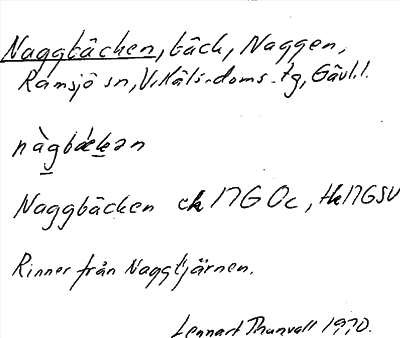 Naggbäcken, bäck, Naggen,
Ramsjö sn, V. Häls. doms. tg, Gävl. l.
nàgbäkən
Naggbäcken ek 17G 0c, Hk 17G SV
Rinner från Naggtjärnen.
Lennart Thunvall 1970.